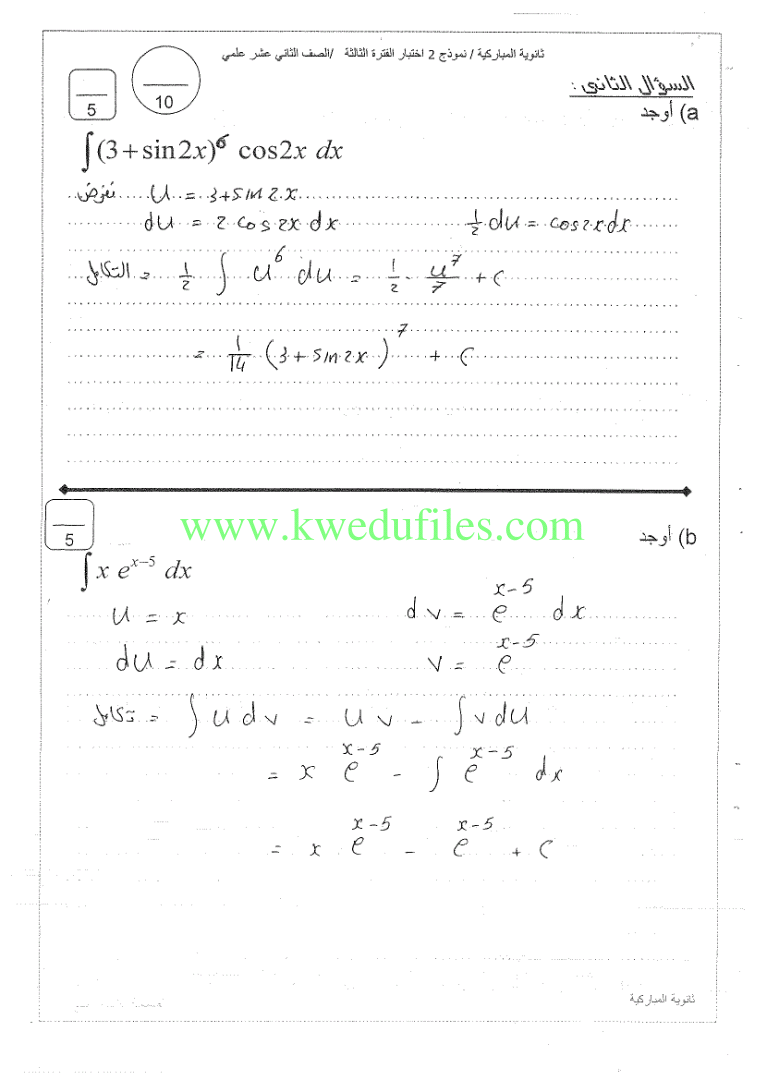 ثانوية المباركية / نموذج 2 اختبار الفترة الثالثة / الصف الثاني عشر علمي
5
10
السؤال الثاني :
a) أوجد
∫(3+sin2x)⁶ cos2x dx
نفرض u = 3+sin2x
du = 2 cos2x dx ½ du = cos2x dx
التكامل = ½ ∫ u⁶ du = ½ · u⁷/7 + C
= 1/14 (3+sin2x)⁷ + C
5
www.kwedufiles.com
b) أوجد
∫ x eˣ⁻⁵ dx
u = x dv = eˣ⁻⁵ dx
du = dx v = eˣ⁻⁵
تكامل = ∫ u dv = uv - ∫ v du
= x eˣ⁻⁵ - ∫ eˣ⁻⁵ dx
= x eˣ⁻⁵ - eˣ⁻⁵ + C
ثانوية المباركية